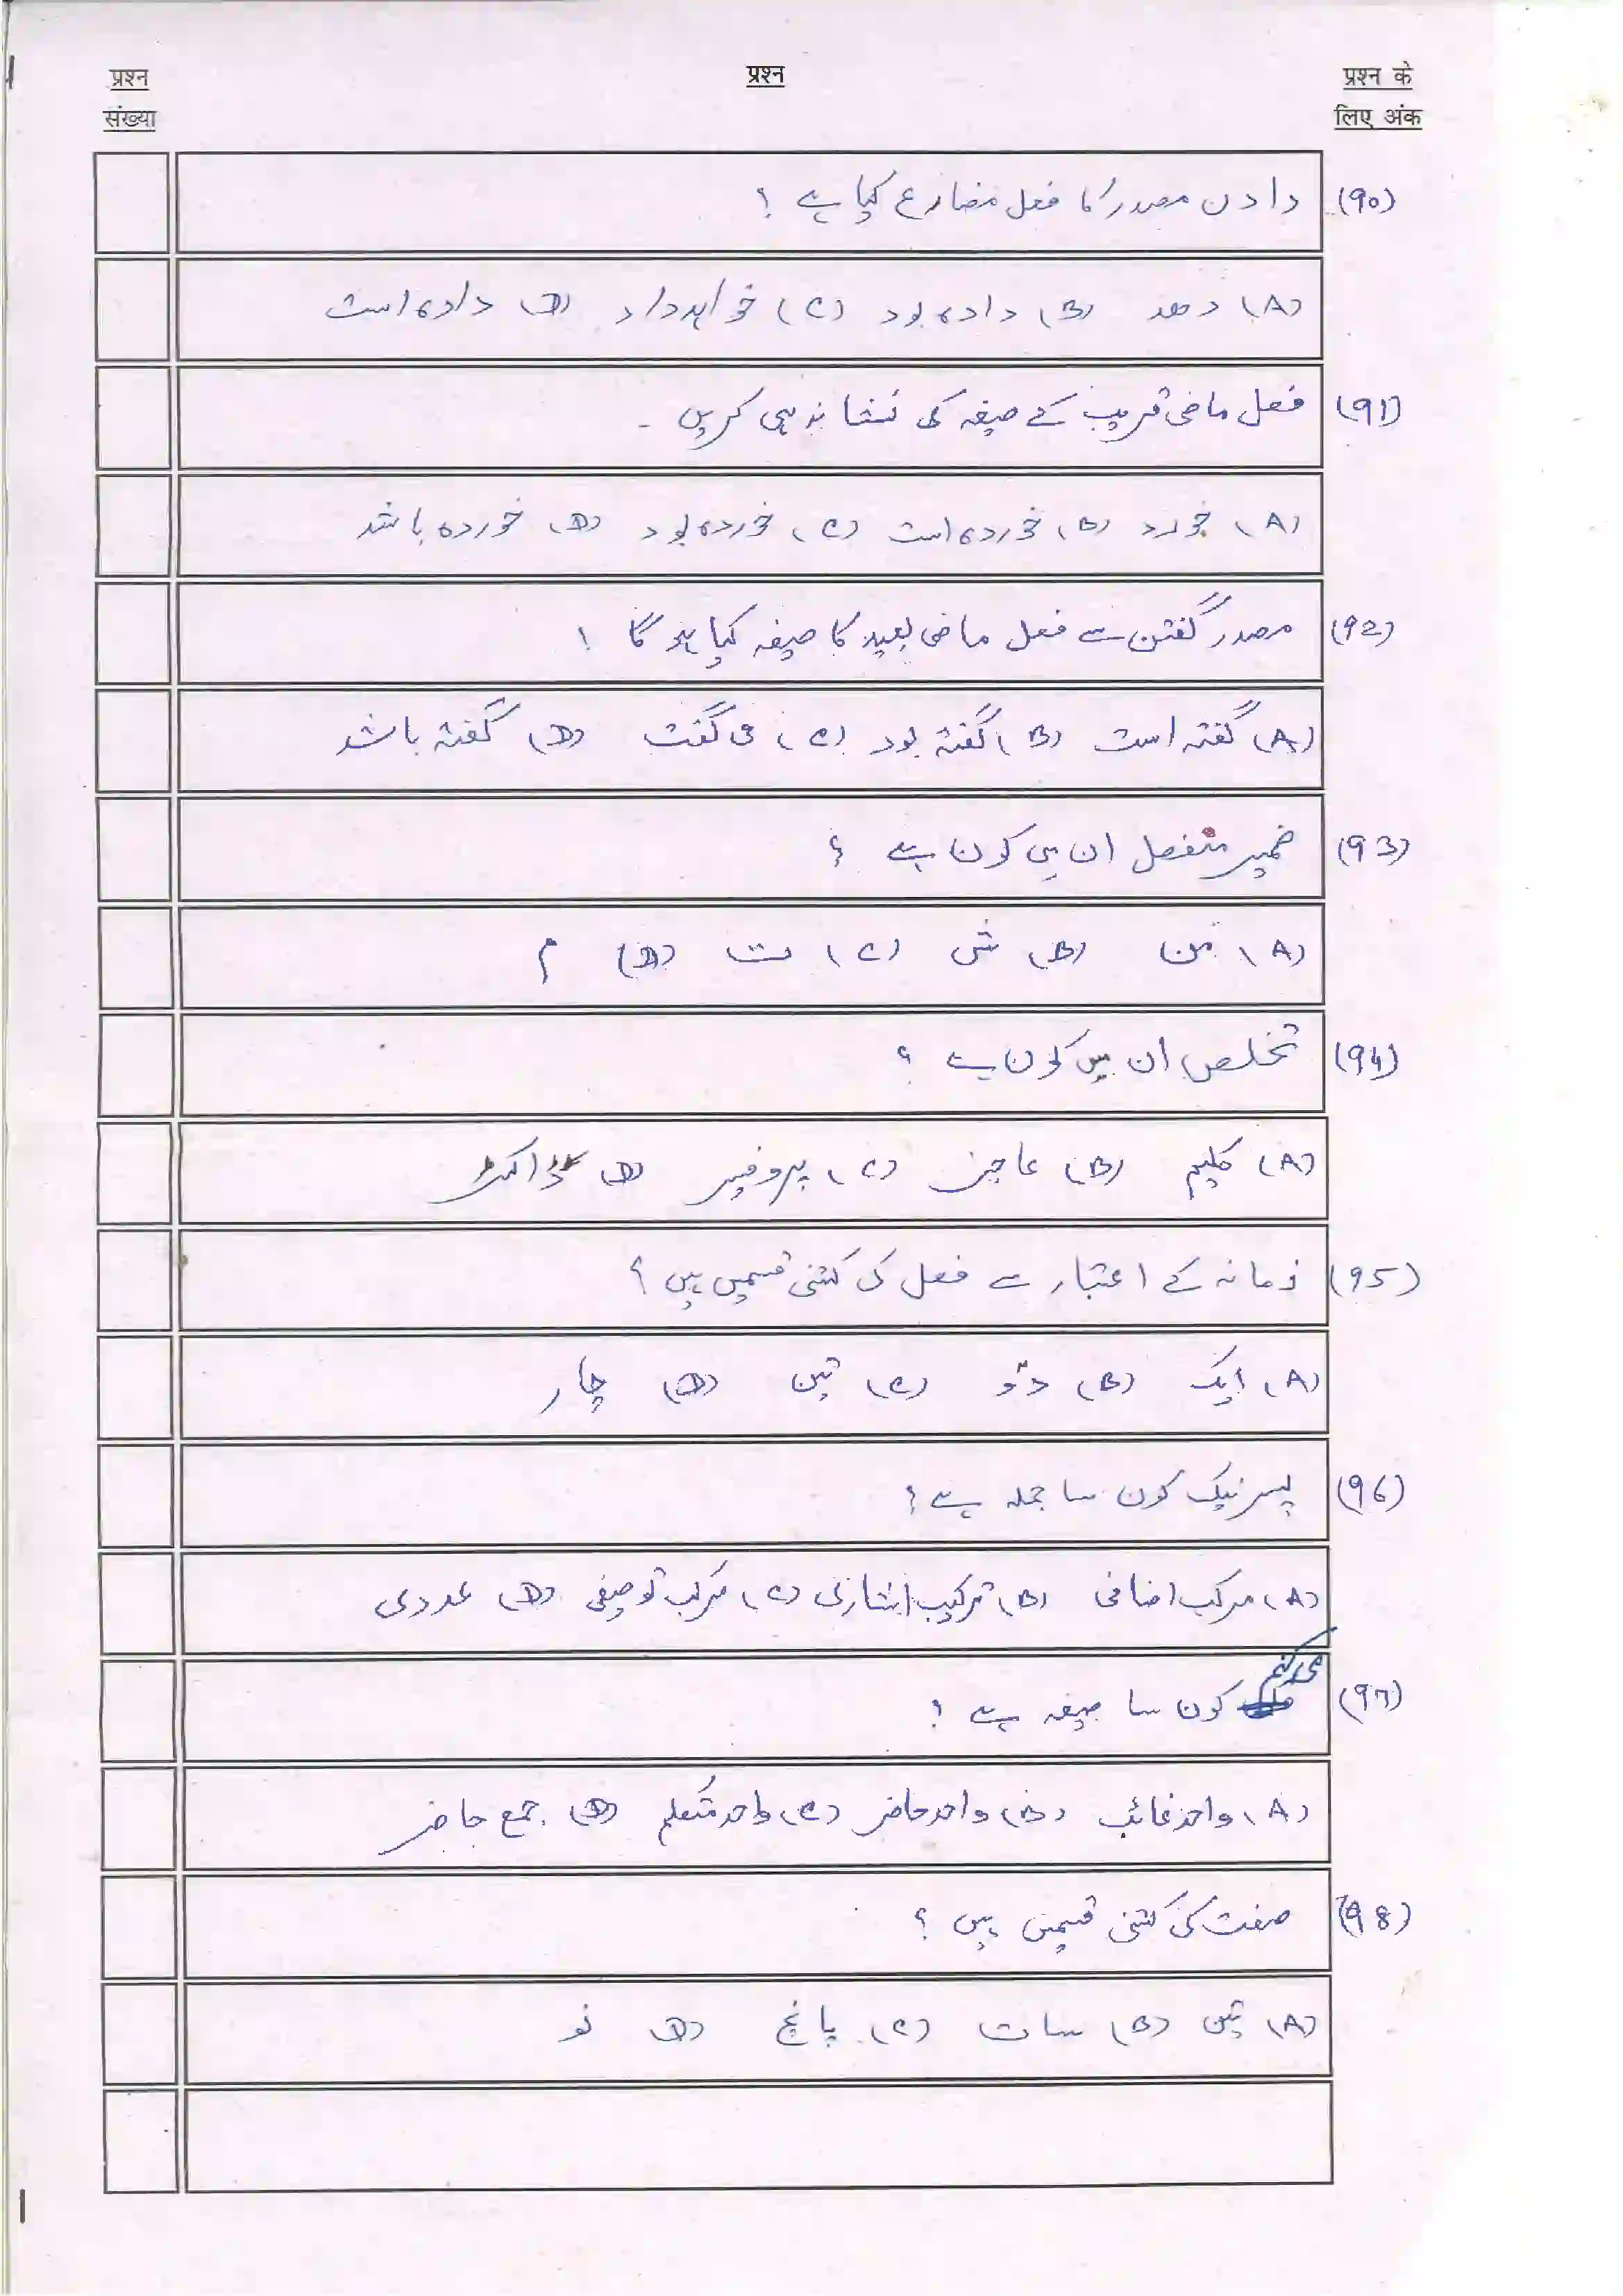 प्रश्न संख्या
प्रश्न
प्रश्न के लिए अंक
(90) دادن مصدر کا فعل مضارع کیا ہے ؟
(A) دھد (B) دادہ بود (C) خواہد داد (D) دادہ است
(91) فعل ماضی قریب کے صیغہ کی نشاندہی کریں ۔
(A) خورد (B) خوردہ است (C) خوردہ بود (D) خوردہ باشد
(92) مصدر گفتن سے فعل ماضی بعید کا صیغہ کیا ہوگا ؟
(A) گفتہ است (B) گفتہ بود (C) می گفت (D) گفتہ باشد
(93) ضمیر منفصل ان میں کون ہے ؟
(A) من (B) ش (C) ت (D) م
(94) تخلص ان میں کون ہے ؟
(A) کلیم (B) عاجز (C) پروفیسر (D) ڈاکٹر
(95) زمانہ کے اعتبار سے فعل کی کتنی قسمیں ہیں ؟
(A) ایک (B) دو (C) تین (D) چار
(96) پسر نیک کون سا جملہ ہے ؟
(A) مرکب اضافی (B) ترکیب اشاری (C) مرکب توصیفی (D) عددی
(97) کون سا صیغہ ہے ؟
(A) واحد غائب (B) واحد حاضر (C) واحد متکلم (D) جمع حاضر
(98) صفت کی کتنی قسمیں ہیں ؟
(A) تین (B) سات (C) پانچ (D) نو